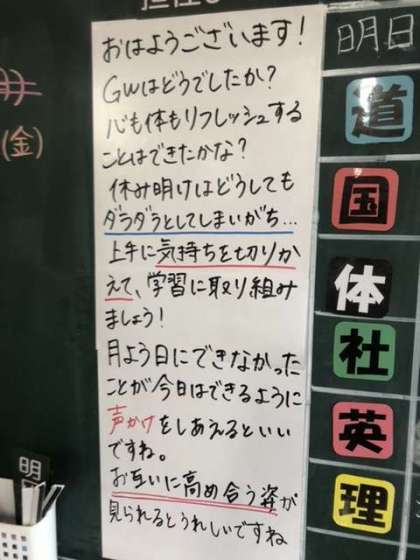 おはようございます!
GWはどうでしたか?
心も体もリフレッシュする
ことはできたかな?
休み明けはどうしても
ダラダラとしてしまいがち…
上手に気持ちを切りか
えて、学習に取り組み
ましょう!
月よう日にできなかった
ことが今日はできるように
声かけをしあえるといい
ですね。
お互いに高め合う姿が
見られるとうれしいですね
明日
道
国
体
社
英
理
(金)
明